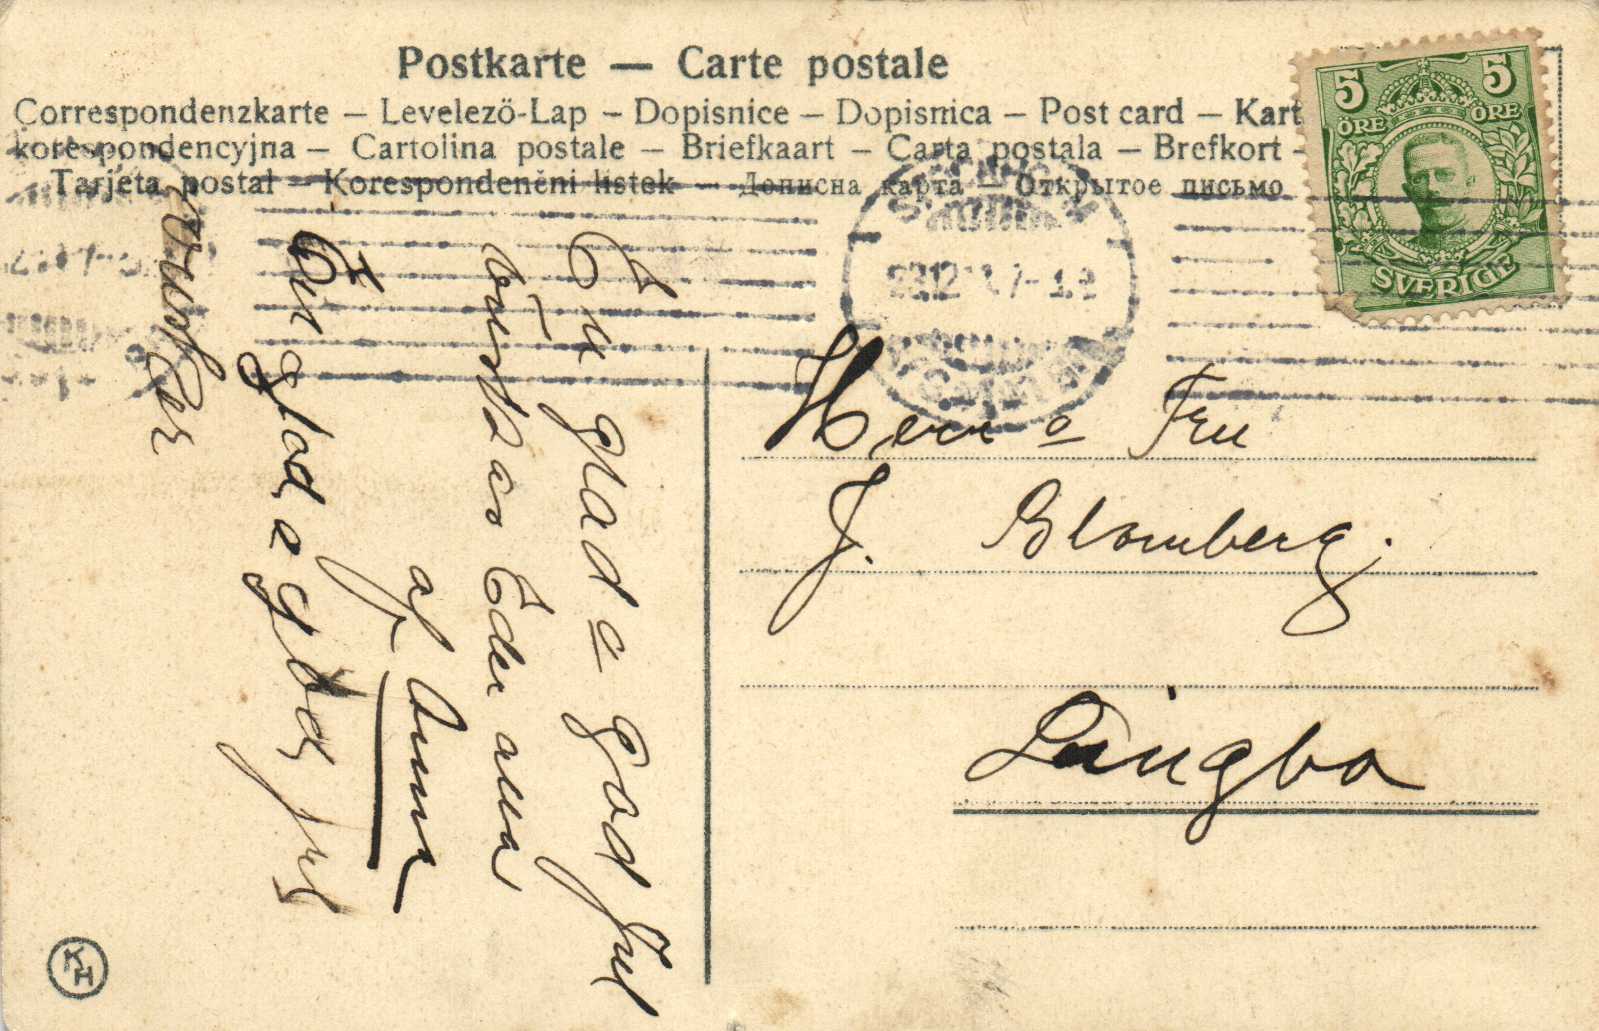 Postkarte — Carte postale
Correspondenzkarte – Levelező-Lap – Dopisnice – Dopisnica – Post card – Kart
korespondencyjna – Cartolina postale – Briefkaart – Carta postala – Brefkort –
Tarjeta postal – Korespondenčni listek – Дописна карта – Открытое письмо
5 5
ÖRE ÖRE
SVERIGE
En glad o god Jul
önskas Eder alla
af Anna
En glad o god jul
Herr o Fru
J. Blomberg.
Lingbo
KH